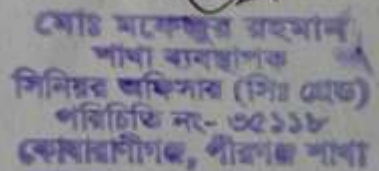 মোঃ মফেজুর রহমান
শাখা ব্যবস্থাপক
সিনিয়র অফিসার (সিঃ গ্রেড)
পরিচিতি নং- ৩৫১১৮
পীরগঞ্জ শাখা